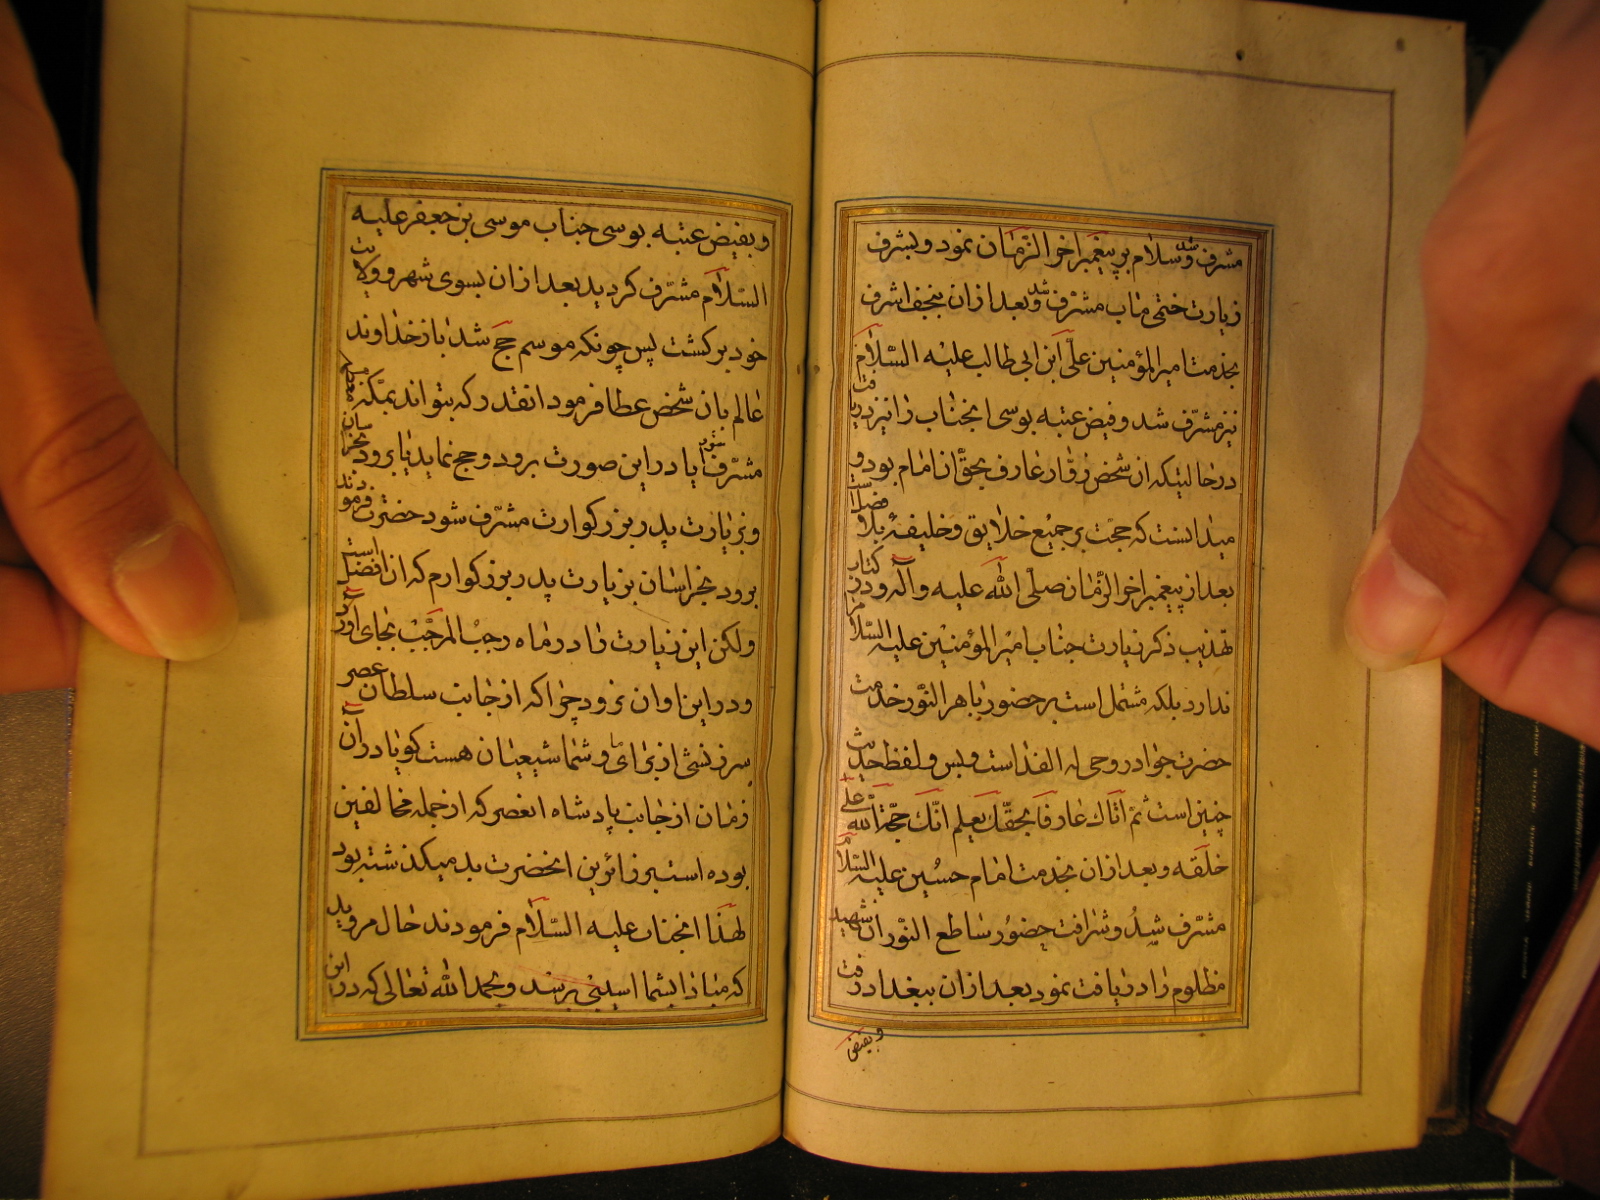 مشرف شد و سلام بر پیغمبر اخر الزمان نمود و بشرف
زیارت ختمی ماب مشرف شد و بعد ازان بنجف اشرف
بخدمت امیر المؤمنین علی ابن ابی طالب علیه السلام
نیز مشرف شد و فیض عتبه بوسی انجناب را نیز دریافت
در حالتیکه ان شخص زوار عارف بحق ان امام بود و
میدانست که حجت بر جمیع خلایق و خلیفهٔ بلا فصل است
بعد از پیغمبر اخر الزمان صلی الله علیه و آله و در کتاب
تهذیب ذکر زیارت جناب امیر المؤمنین علیه السلام
ندارد بلکه مشتمل است بر حضور باهر النور خدمت
حضرت جواد روحی له الفداست و بس و لفظ حدیث
چنین است ثم اتاك عارفا بحقك یعلم انك حجة الله علی
خلقه و بعد ازان بخدمت امام حسین علیه السلام
مشرف شد و شرافت حضور ساطع النور ان شهید
مظلوم را دریافت نمود بعد ازان ببغداد رفت
و بفیض
و بفیض عتبه بوسی جناب موسی بن جعفر علیه
السلام مشرف کردید بعد ازان بسوی شهر و ولایت
خود برکشت پس چونکه موسم حج شد باز خداوند
عالم بان شخص عطا فرمود انقدر که بتواند بمکه معظمه
مشرف شود ایا در این صورت برود و حج نماید یا برود بخراسان
و بزیارت پدر بزرکوارت مشرف شود حضرت فرمودند
برود بخراسان بزیارت پدر بزرکوارم که ان افضل است
ولکن این زیارت را در ماه رجب المرجب بجای آورد
و در این اوان نرود چرا که از جانب سلطان عصر
سرزنشی از برای ما و شما شیعیان هست کویا در آن
زمان از جانب پادشاه انعصر که از جمله مخالفین
بوده است بر زائرین انحضرت بد میکذشته بود
لهذا انجناب علیه السلام فرمودند حال مروید
که مبادا بشما اسیبی برسد و بحمد الله تعالی که در این